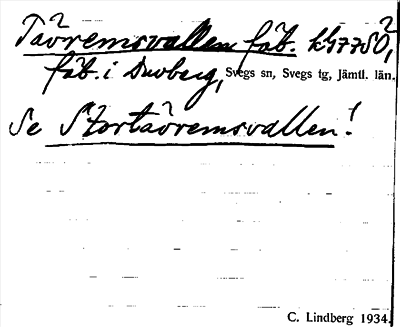 Tåvremsvallen fäb.
fäb. i Duvberg, Svegs sn, Svegs tg, Jämtl. län.
Se Stortåvremsvallen!
C. Lindberg 1934.